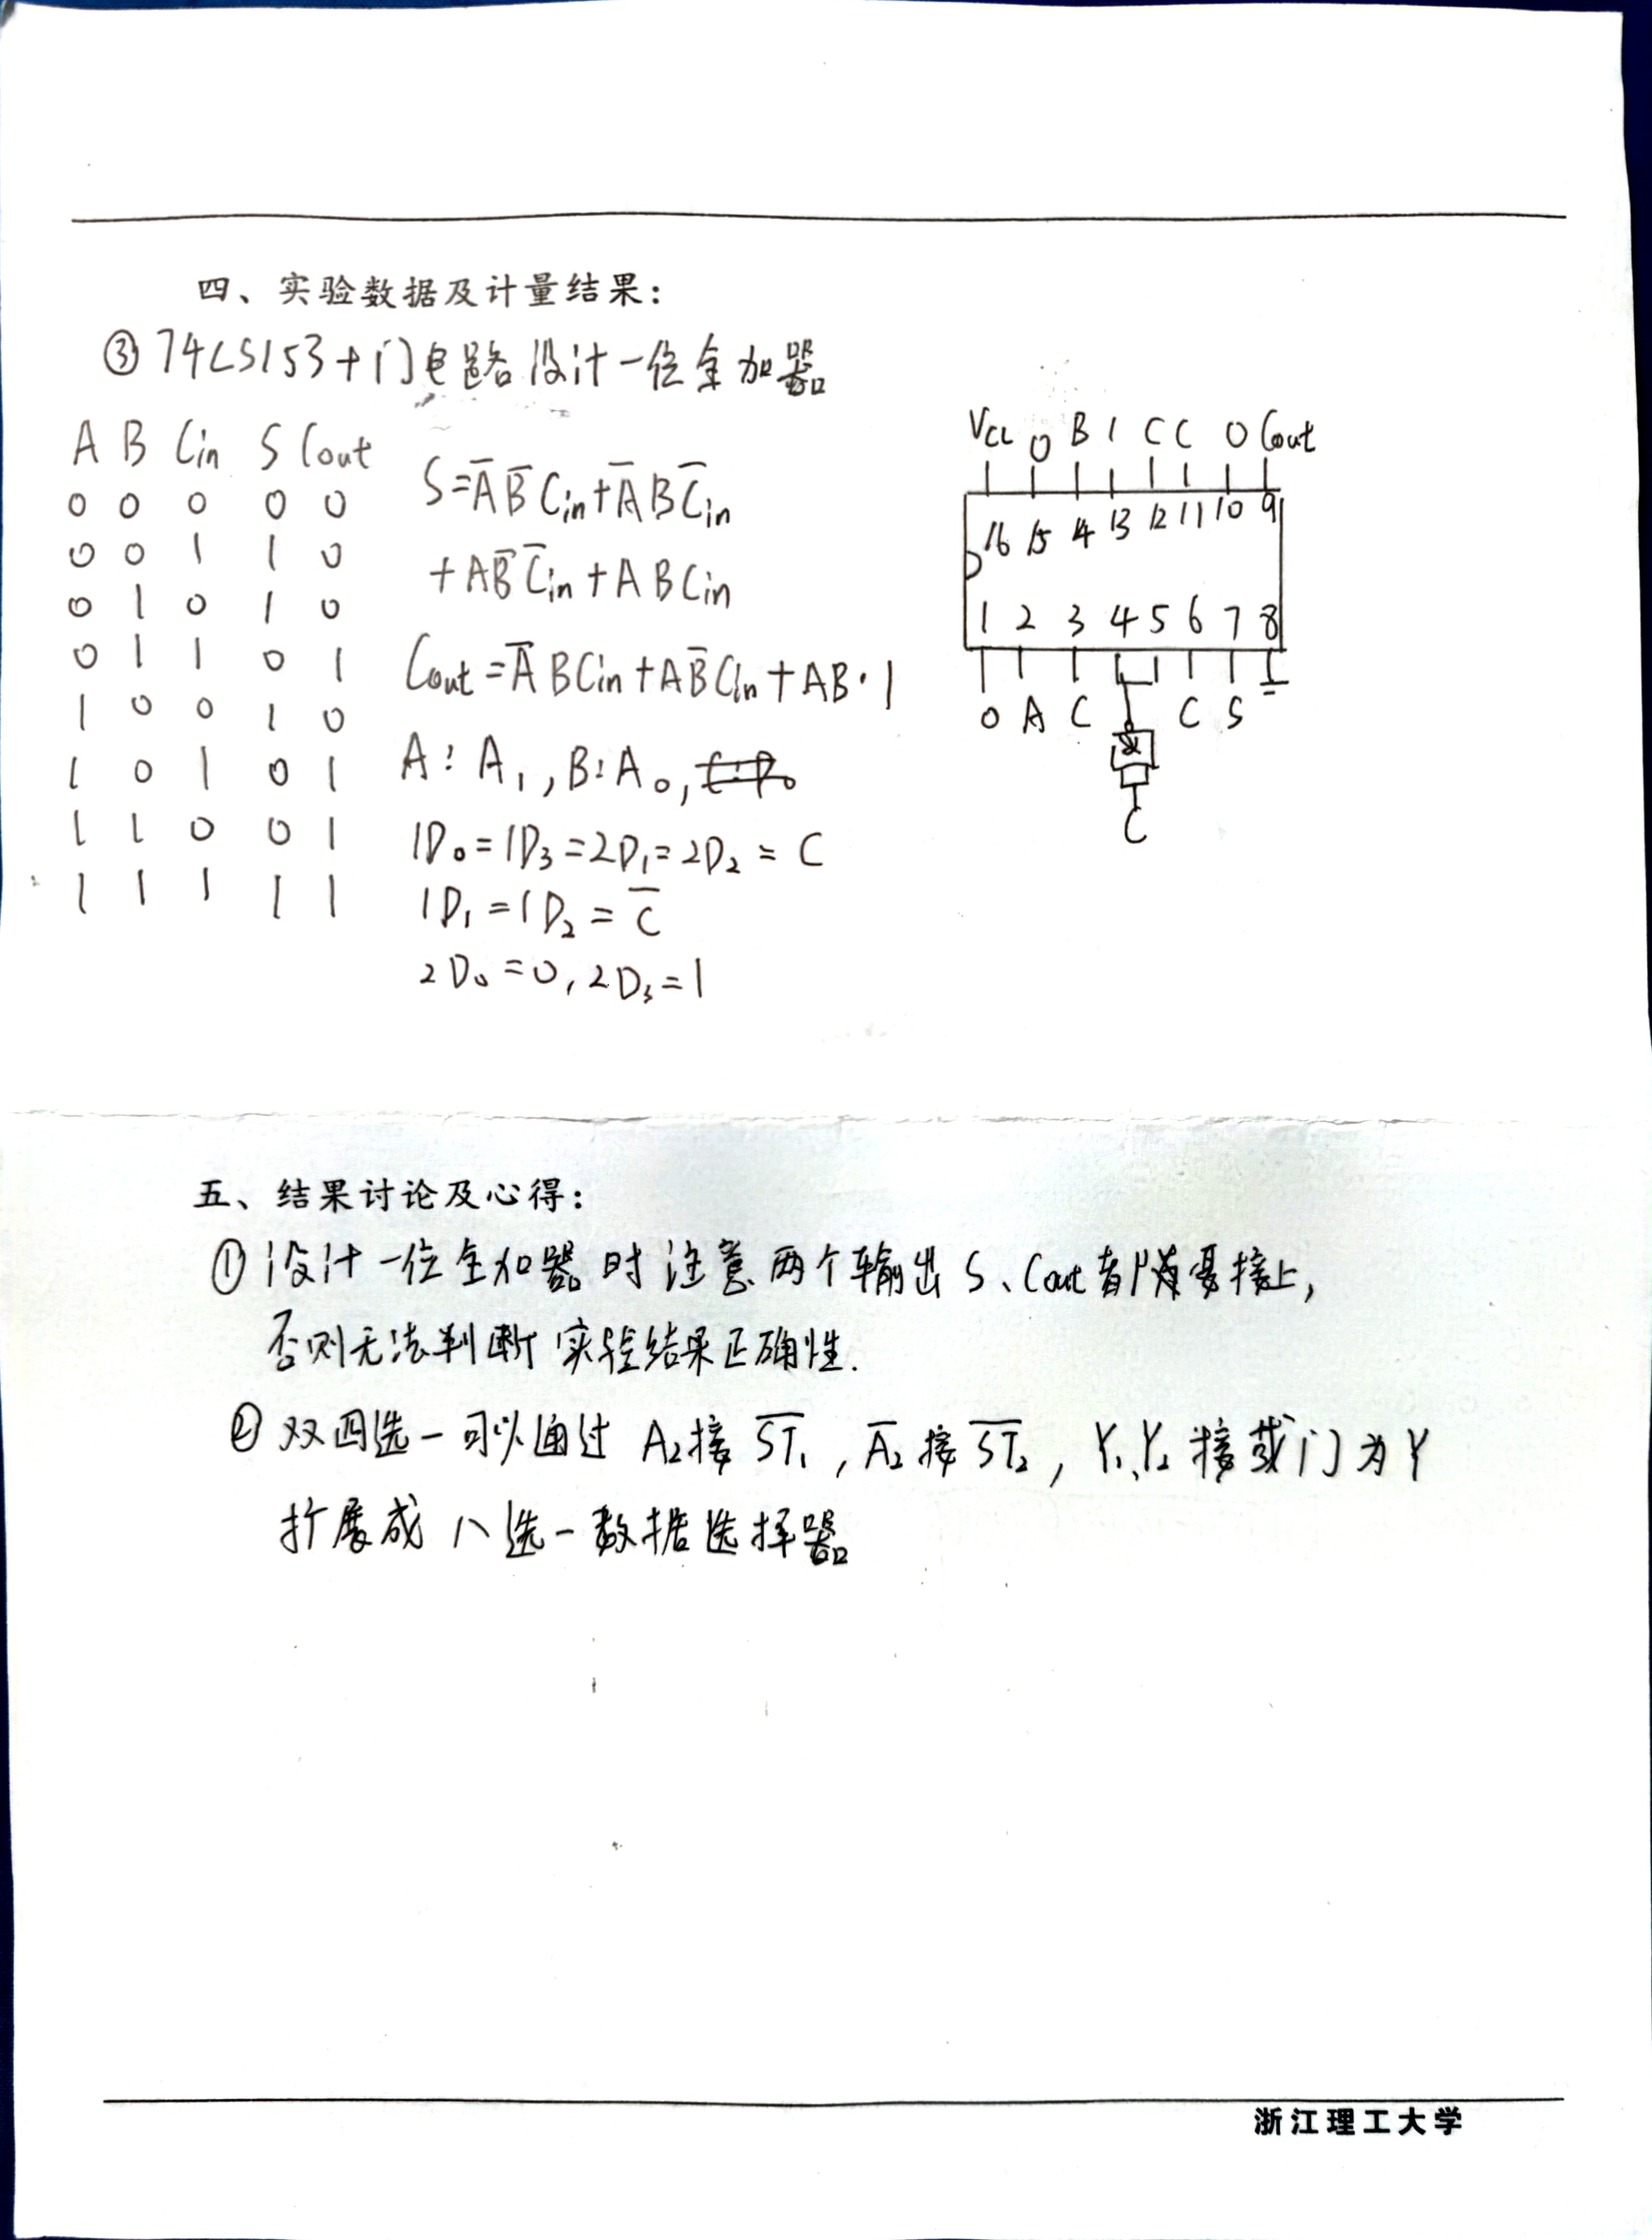 四、实验数据及计量结果:
③ 74LS153+门电路设计一位全加器
A B Cin S Cout
0 0 0 0 0
0 0 1 1 0
0 1 0 1 0
0 1 1 0 1
1 0 0 1 0
1 0 1 0 1
1 1 0 0 1
1 1 1 1 1
S=A̅ B̅ Cin+A̅ B C̅in
+A B̅ C̅in+A B Cin
Cout=A̅ B Cin+A B̅ Cin+AB·1
A:A₁,B:A₀,
1D₀=1D₃=2D₁=2D₂=C
1D₁=1D₂=C̅
2D₀=0,2D₃=1
Vcc 0 B 1 C C 0 Cout
16 15 14 13 12 11 10 9
1 2 3 4 5 6 7 8
0 A C C S
C
五、结果讨论及心得:
① 设计一位全加器时注意两个输出S、Cout都需要接上,
否则无法判断实验结果正确性.
② 双四选一可以通过 A₂接 S̅T̅₁,A̅₂接S̅T̅₂,Y₁、Y₂接或门为Y
扩展成八选一数据选择器
浙江理工大学